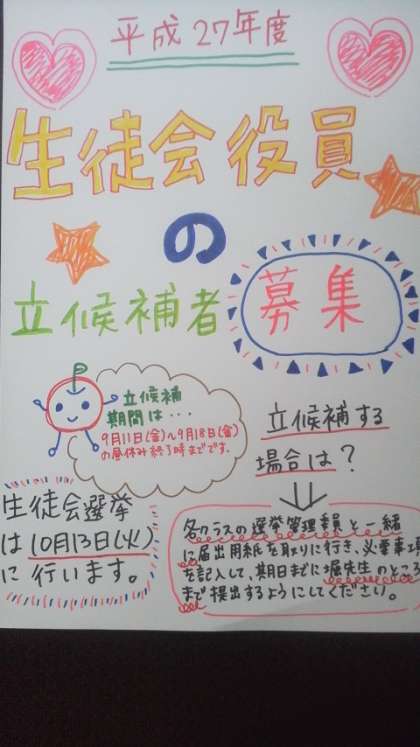 平成27年度
生徒会役員
の
立候補者 募集
立候補
期間は・・・
9月11日(金)~9月18日(金)
の昼休み終了時までです。
立候補する
場合は?
生徒会選挙
は10月13日(火)
に行います。
各クラスの選挙管理委員と一緒
に届出用紙を取りに行き、必要事項
を記入して、期日までに堀先生のところ
まで提出するようにしてください。